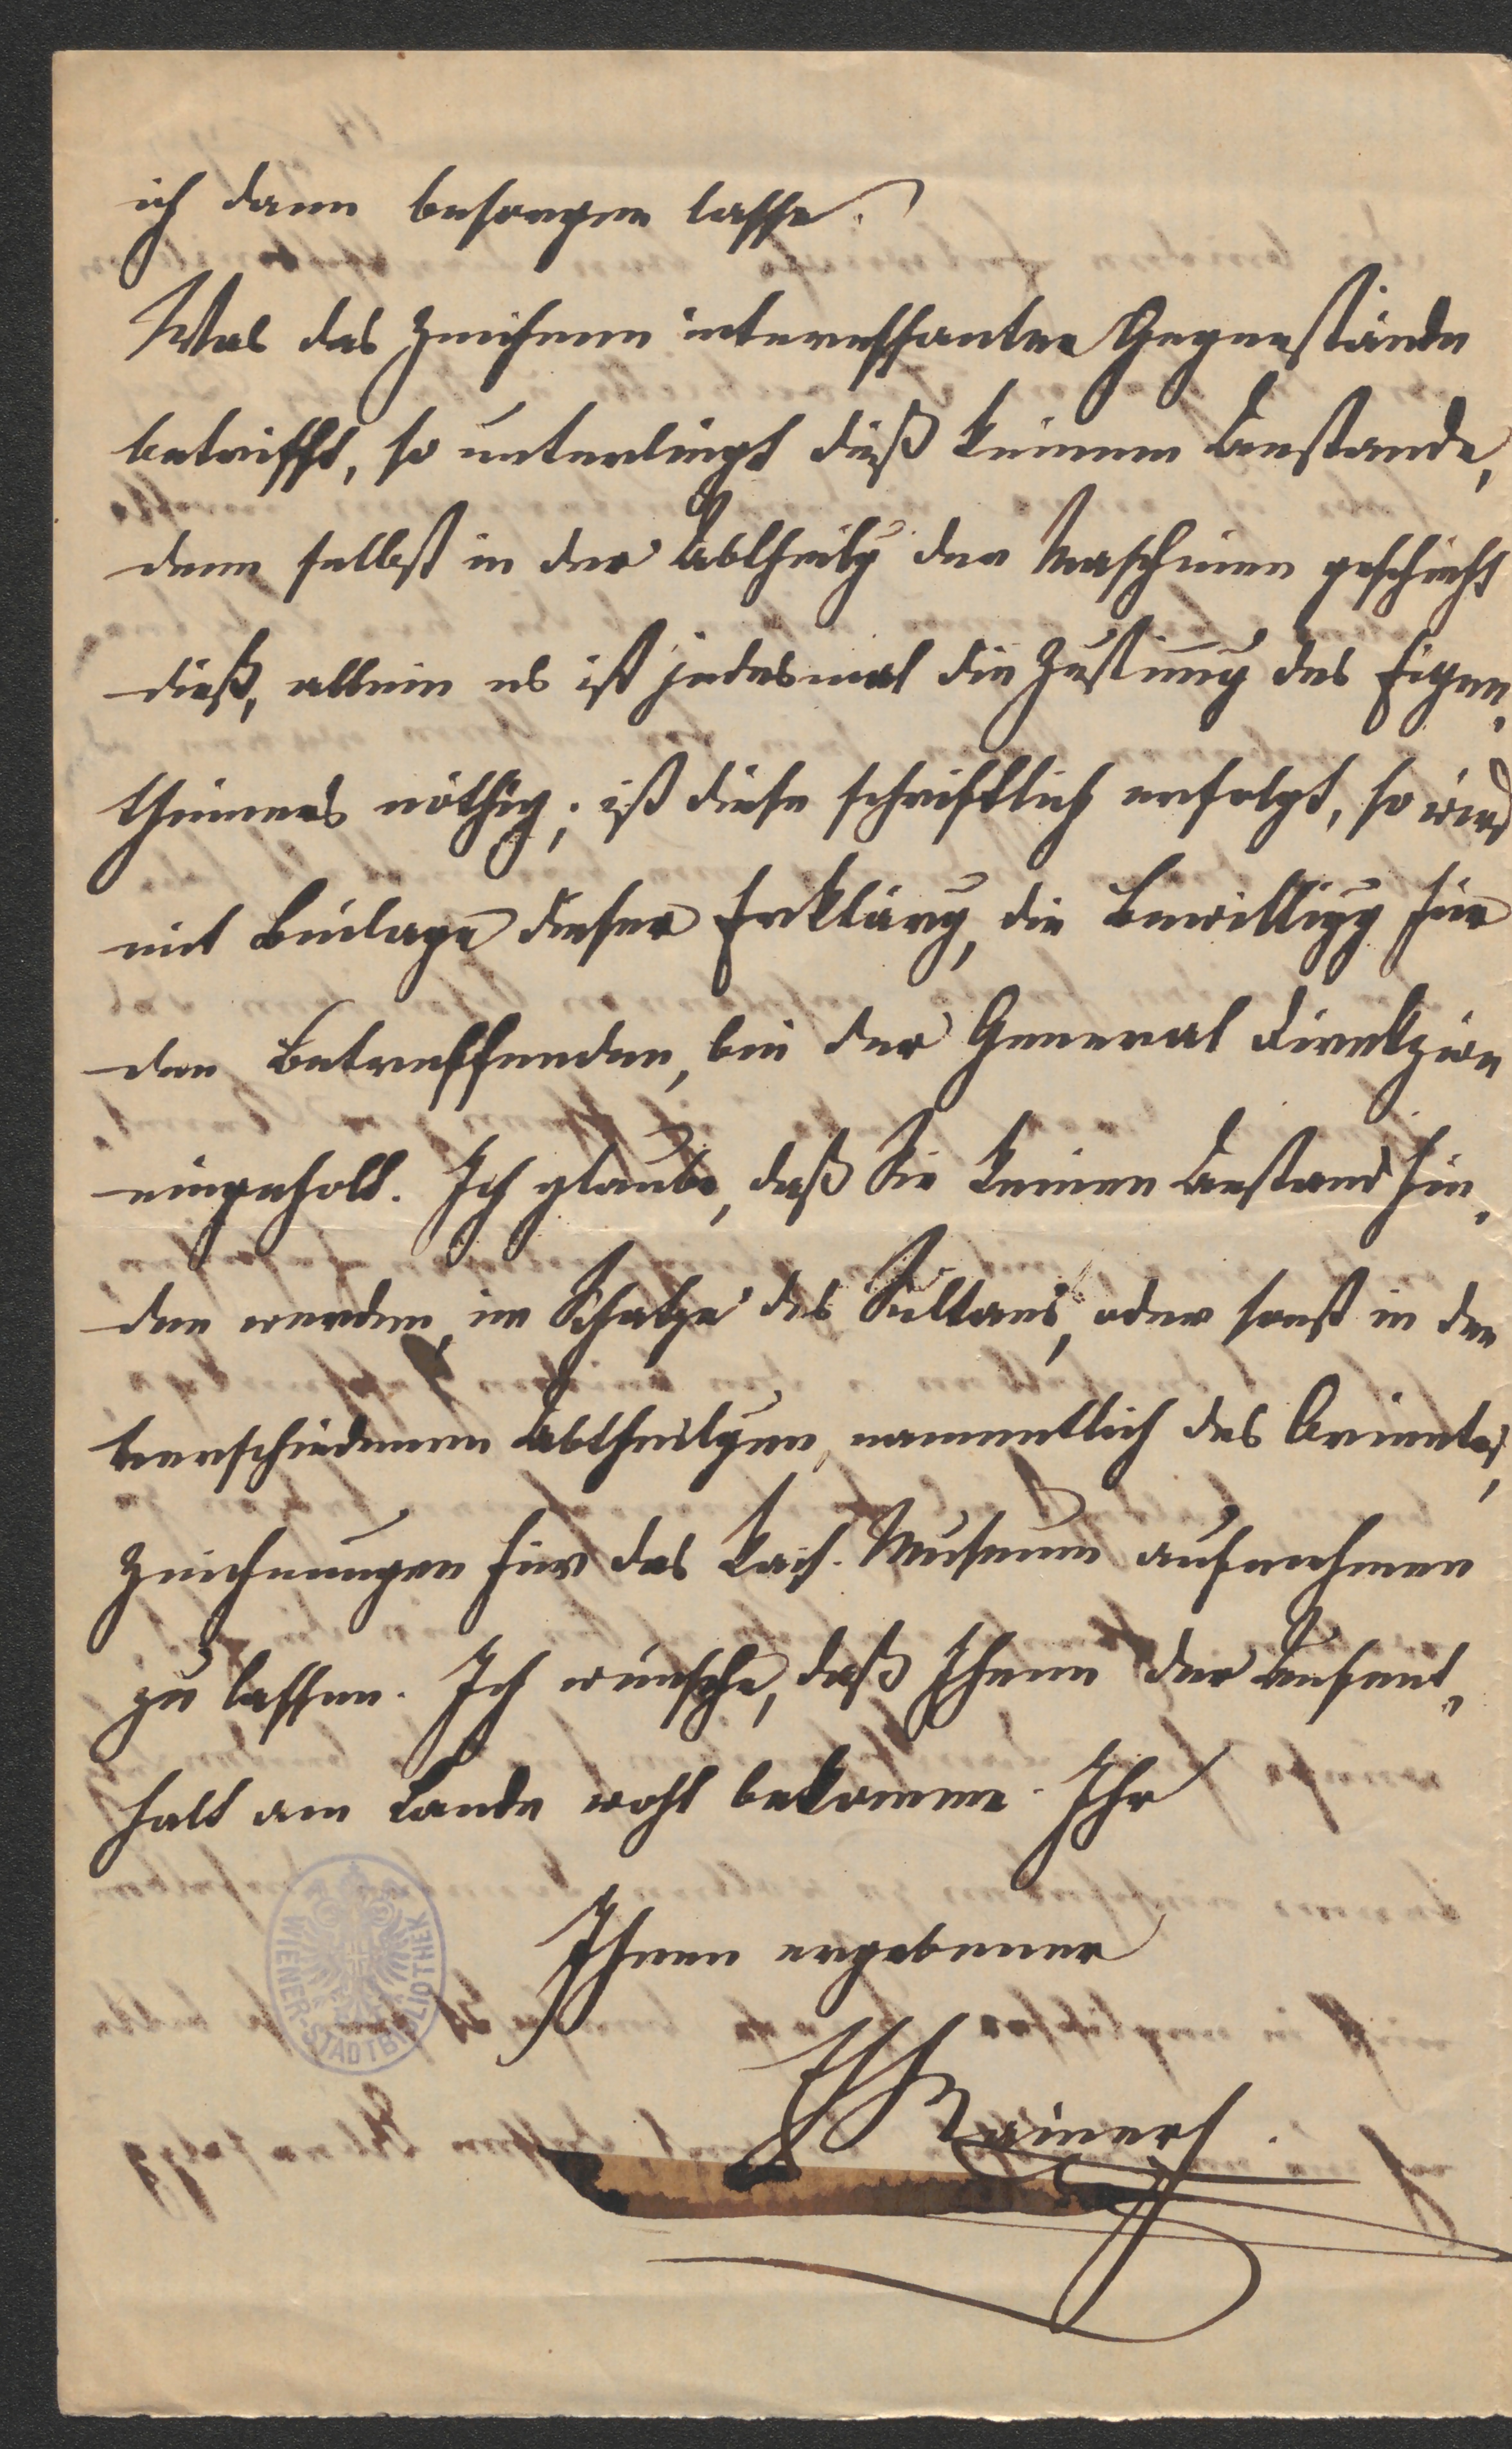 ich dann besorgen lasse.
Was das Zeichnen interessanter Gegenstände
betrifft, so unterliegt dieß keinem Anstande,
denn selbst in der Abtheilg der Maschinen geschieht
dieß, allein es ist jedesmal die Zustim̅g des Eigen„
thümers nöthig; ist diese schriftlich erfolgt, so wird
mit Beilage dieser Erklärg, die Bewilligg für
den Betreffenden, bei der General Direktzion
eingeholt. Ich glaube, daß Sie keinen Anstand fin„
den werden, im Schatze des Sultans, oder sonst in den
verschiedenen Abtheilgen, namentlich des Orientes,
Zeichnungen für das kais. Museum aufnehmen
zu lassen. Ich wünsche, daß Ihnen der Aufent„
halt am Lande wohl bekomme. Ihr
Ihnen ergebener
EH Rainer
WIENER-STADTBIBLIOTHEK